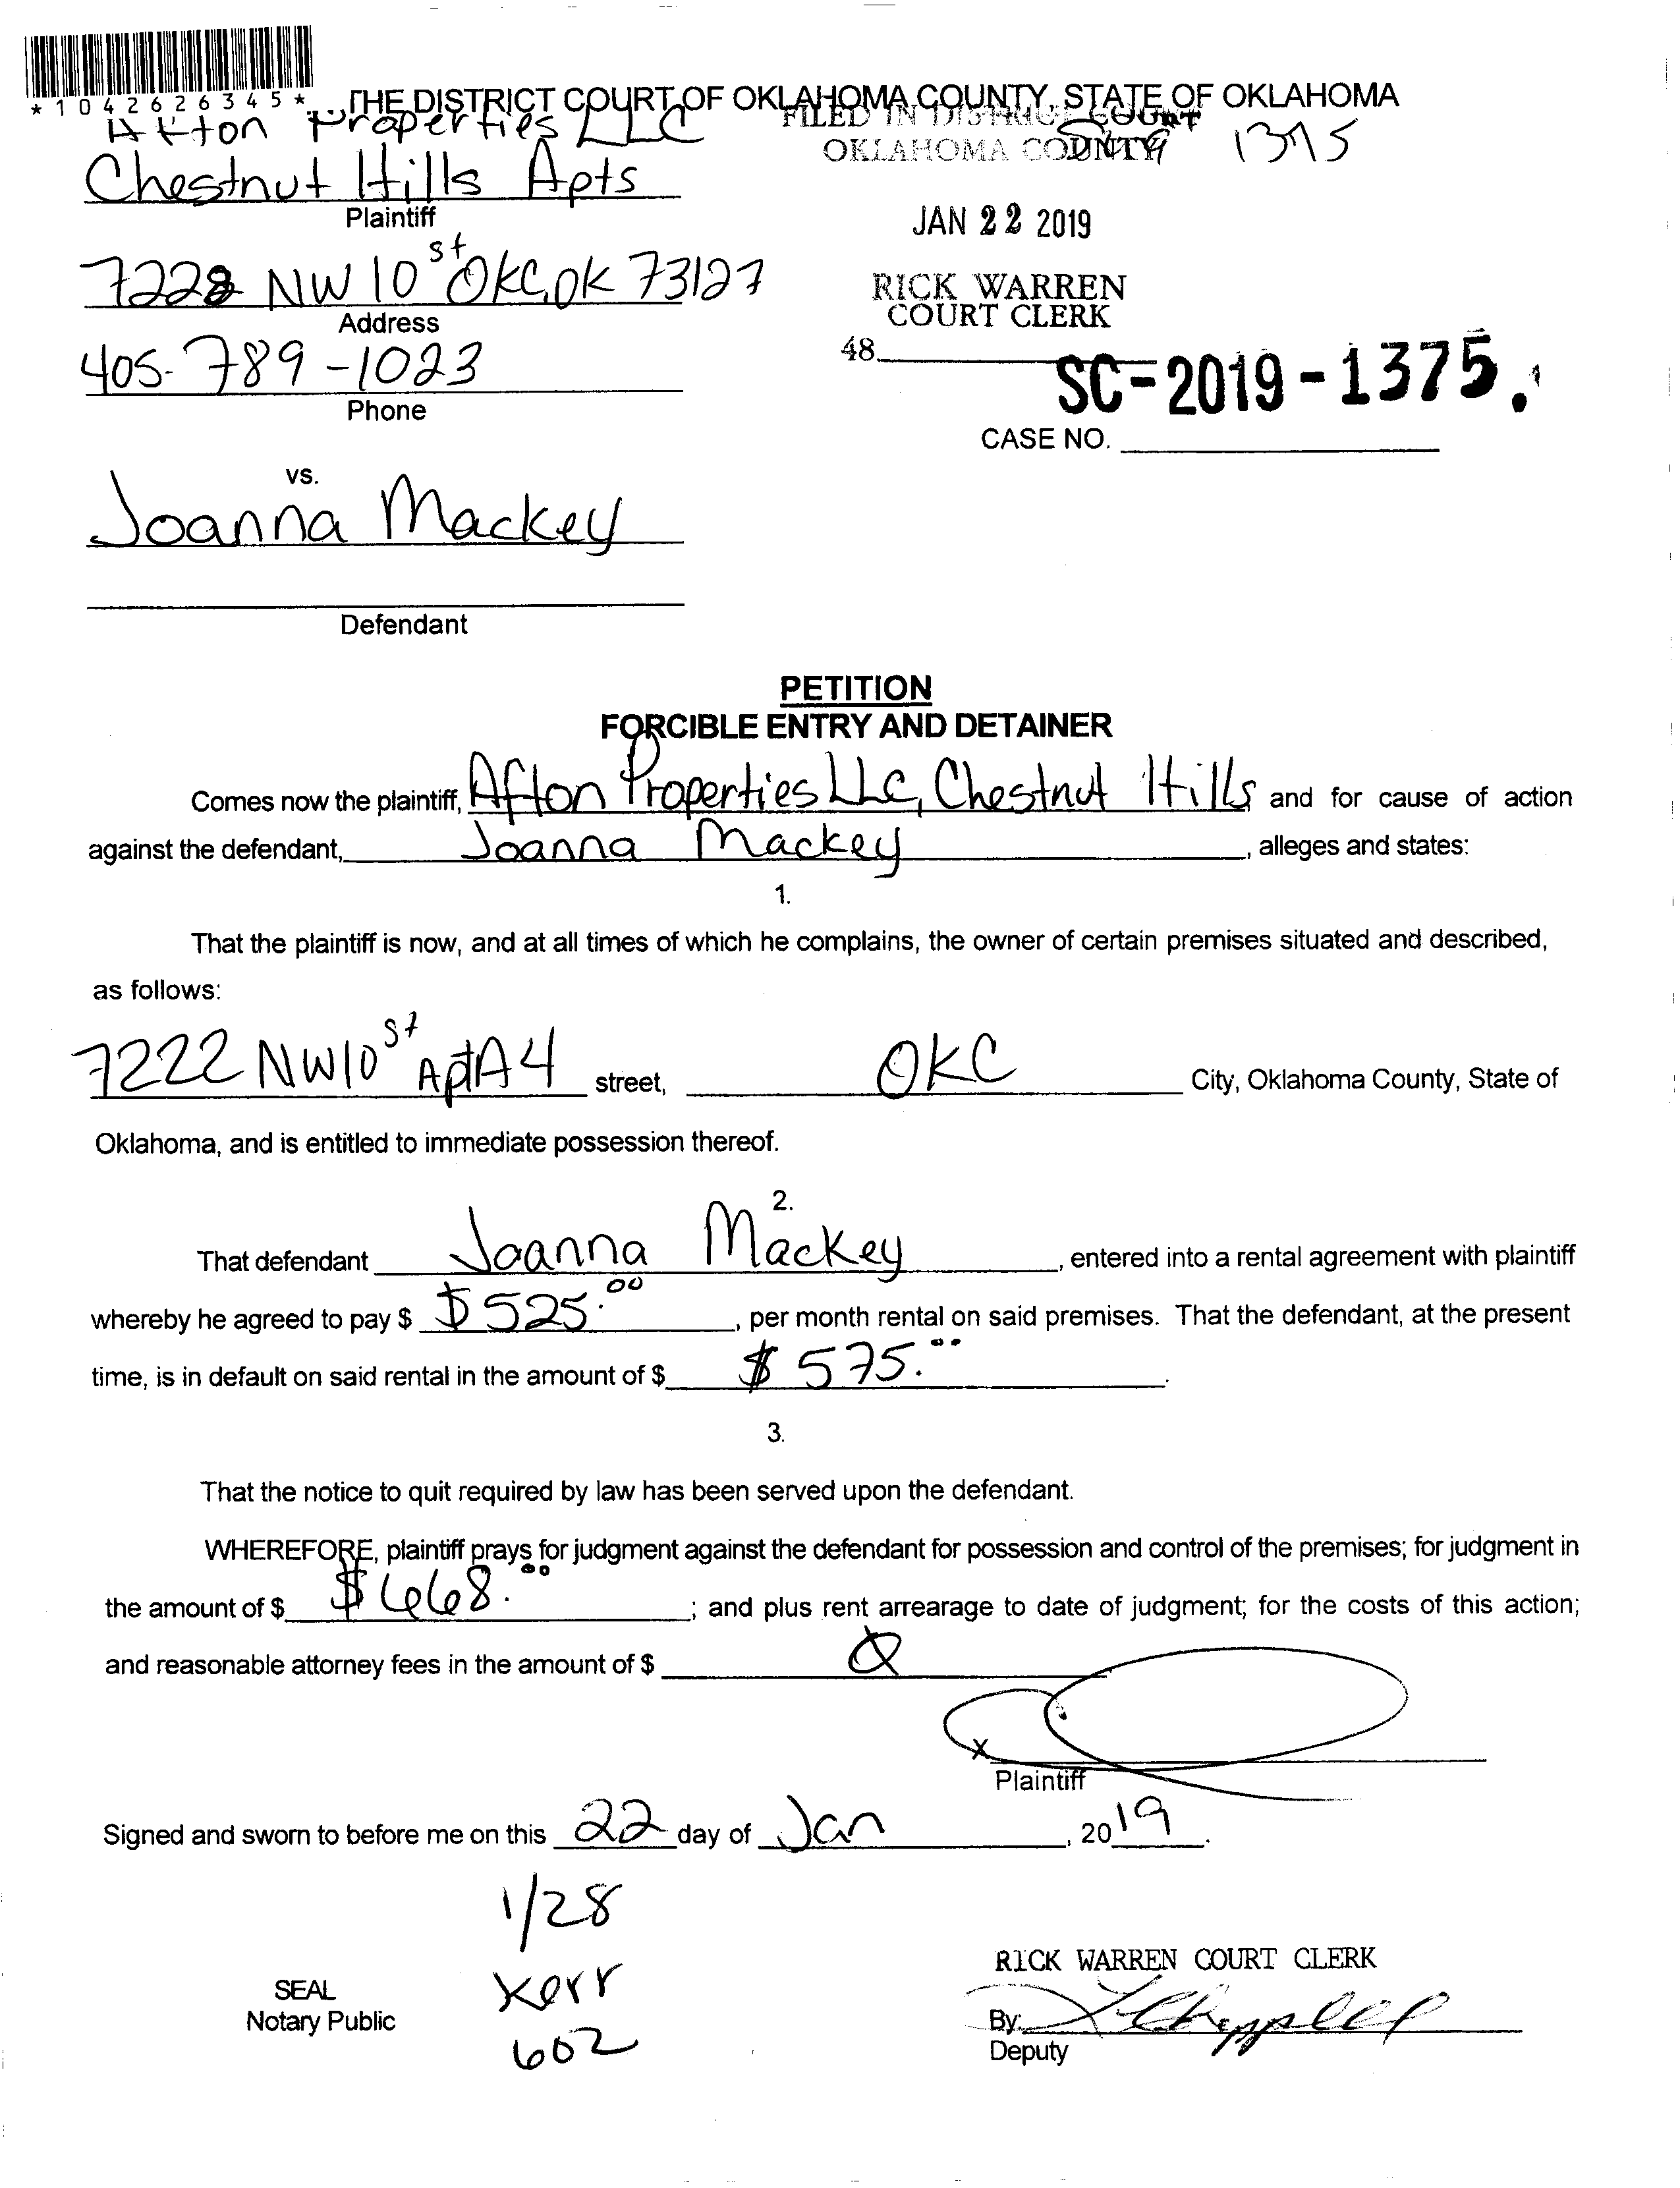 *1042626345*
THE DISTRICT COURT OF OKLAHOMA COUNTY, STATE OF OKLAHOMA
Afton Properties LLC
FILED IN DISTRICT COURT
OKLAHOMA COUNTY
Chestnut Hills Apts
Plaintiff
JAN 22 2019
7228 NW 10 st OKC, OK 73127
Address
RICK WARREN
COURT CLERK
405-789-1023
Phone
48
SC-2019-1375
CASE NO.
vs.
Joanna Mackey
Defendant
PETITION
FORCIBLE ENTRY AND DETAINER
Comes now the plaintiff, Afton Properties LLC, Chestnut Hills and for cause of action
against the defendant, Joanna Mackey, alleges and states:
1.
That the plaintiff is now, and at all times of which he complains, the owner of certain premises situated and described,
as follows:
7222 NW10 st Apt A4 street, OKC City, Oklahoma County, State of
Oklahoma, and is entitled to immediate possession thereof.
2.
That defendant Joanna Mackey, entered into a rental agreement with plaintiff
whereby he agreed to pay $ $525.00, per month rental on said premises. That the defendant, at the present
time, is in default on said rental in the amount of $ $575.00.
3.
That the notice to quit required by law has been served upon the defendant.
WHEREFORE, plaintiff prays for judgment against the defendant for possession and control of the premises; for judgment in
the amount of $ $668.00; and plus rent arrearage to date of judgment; for the costs of this action;
and reasonable attorney fees in the amount of $ 0
x
Plaintiff
Signed and sworn to before me on this 22 day of Jan, 2019.
1/28
Kerr
602
SEAL
Notary Public
RICK WARREN COURT CLERK
By:
Deputy